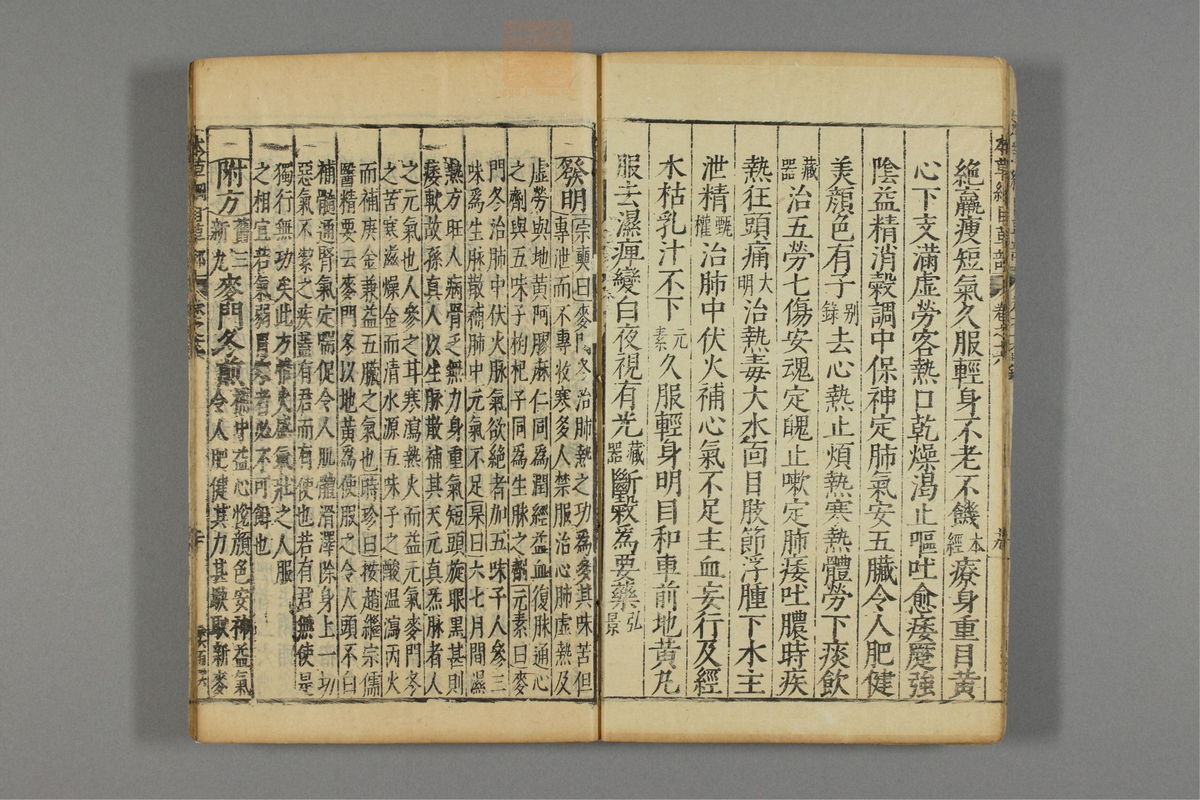 絶羸瘦短氣久服輕身不老不饑本經療身重目黃
心下支滿虛勞客熱口乾燥渴止嘔吐愈痿蹷強
陰益精消穀調中保神定肺氣安五臟令人肥健
美顏色有子别錄去心熱止煩熱寒熱體勞下痰飲
藏器治五勞七傷安魂定魄止嗽定肺痿吐膿時疾
熱狂頭痛大明治熱毒大水面目肢節浮腫下水主
泄精甄權治肺中伏火補心氣不足主血妄行及經
水枯乳汁不下元素久服輕身明目和車前地黃丸
服去濕痺變白夜視有光藏器斷穀爲要藥弘景
發明宗奭曰麥門冬治肺熱之功爲多其味苦但
專泄而不專收寒多人禁服治心肺虛熱及
虛勞與地黃阿膠麻仁同爲潤經益血復脉通心
之劑與五味子枸杞子同爲生脉之劑元素曰麥
門冬治肺中伏火脉氣欲絕者加五味子人參三
味爲生脉散補肺中元氣不足杲曰六七月間濕
熱方旺人病骨乏無力身重氣短頭旋眼黑甚則
痿軟故孫真人以生脉散補其天元真炁脉者人
之元氣也人參之甘寒瀉熱火而益元氣麥門冬
之苦寒滋燥金而清水源五味子之酸溫瀉丙火
而補庚金兼益五臟之氣也時珍曰按趙繼宗儒
醫精要云麥門冬以地黃爲使服之令人頭不白
補髓通腎氣定喘促令人肌體滑澤除身上一切
惡氣不潔之疾蓋有君而有使也若有君無使是
獨行無功矣此方惟火盛氣壯之人服
之相宜若氣弱胃寒者必不可餌也
附方舊三新九麥門冬煎補中益心悅顏色安神益氣
令人肥健其力甚駃取新麥